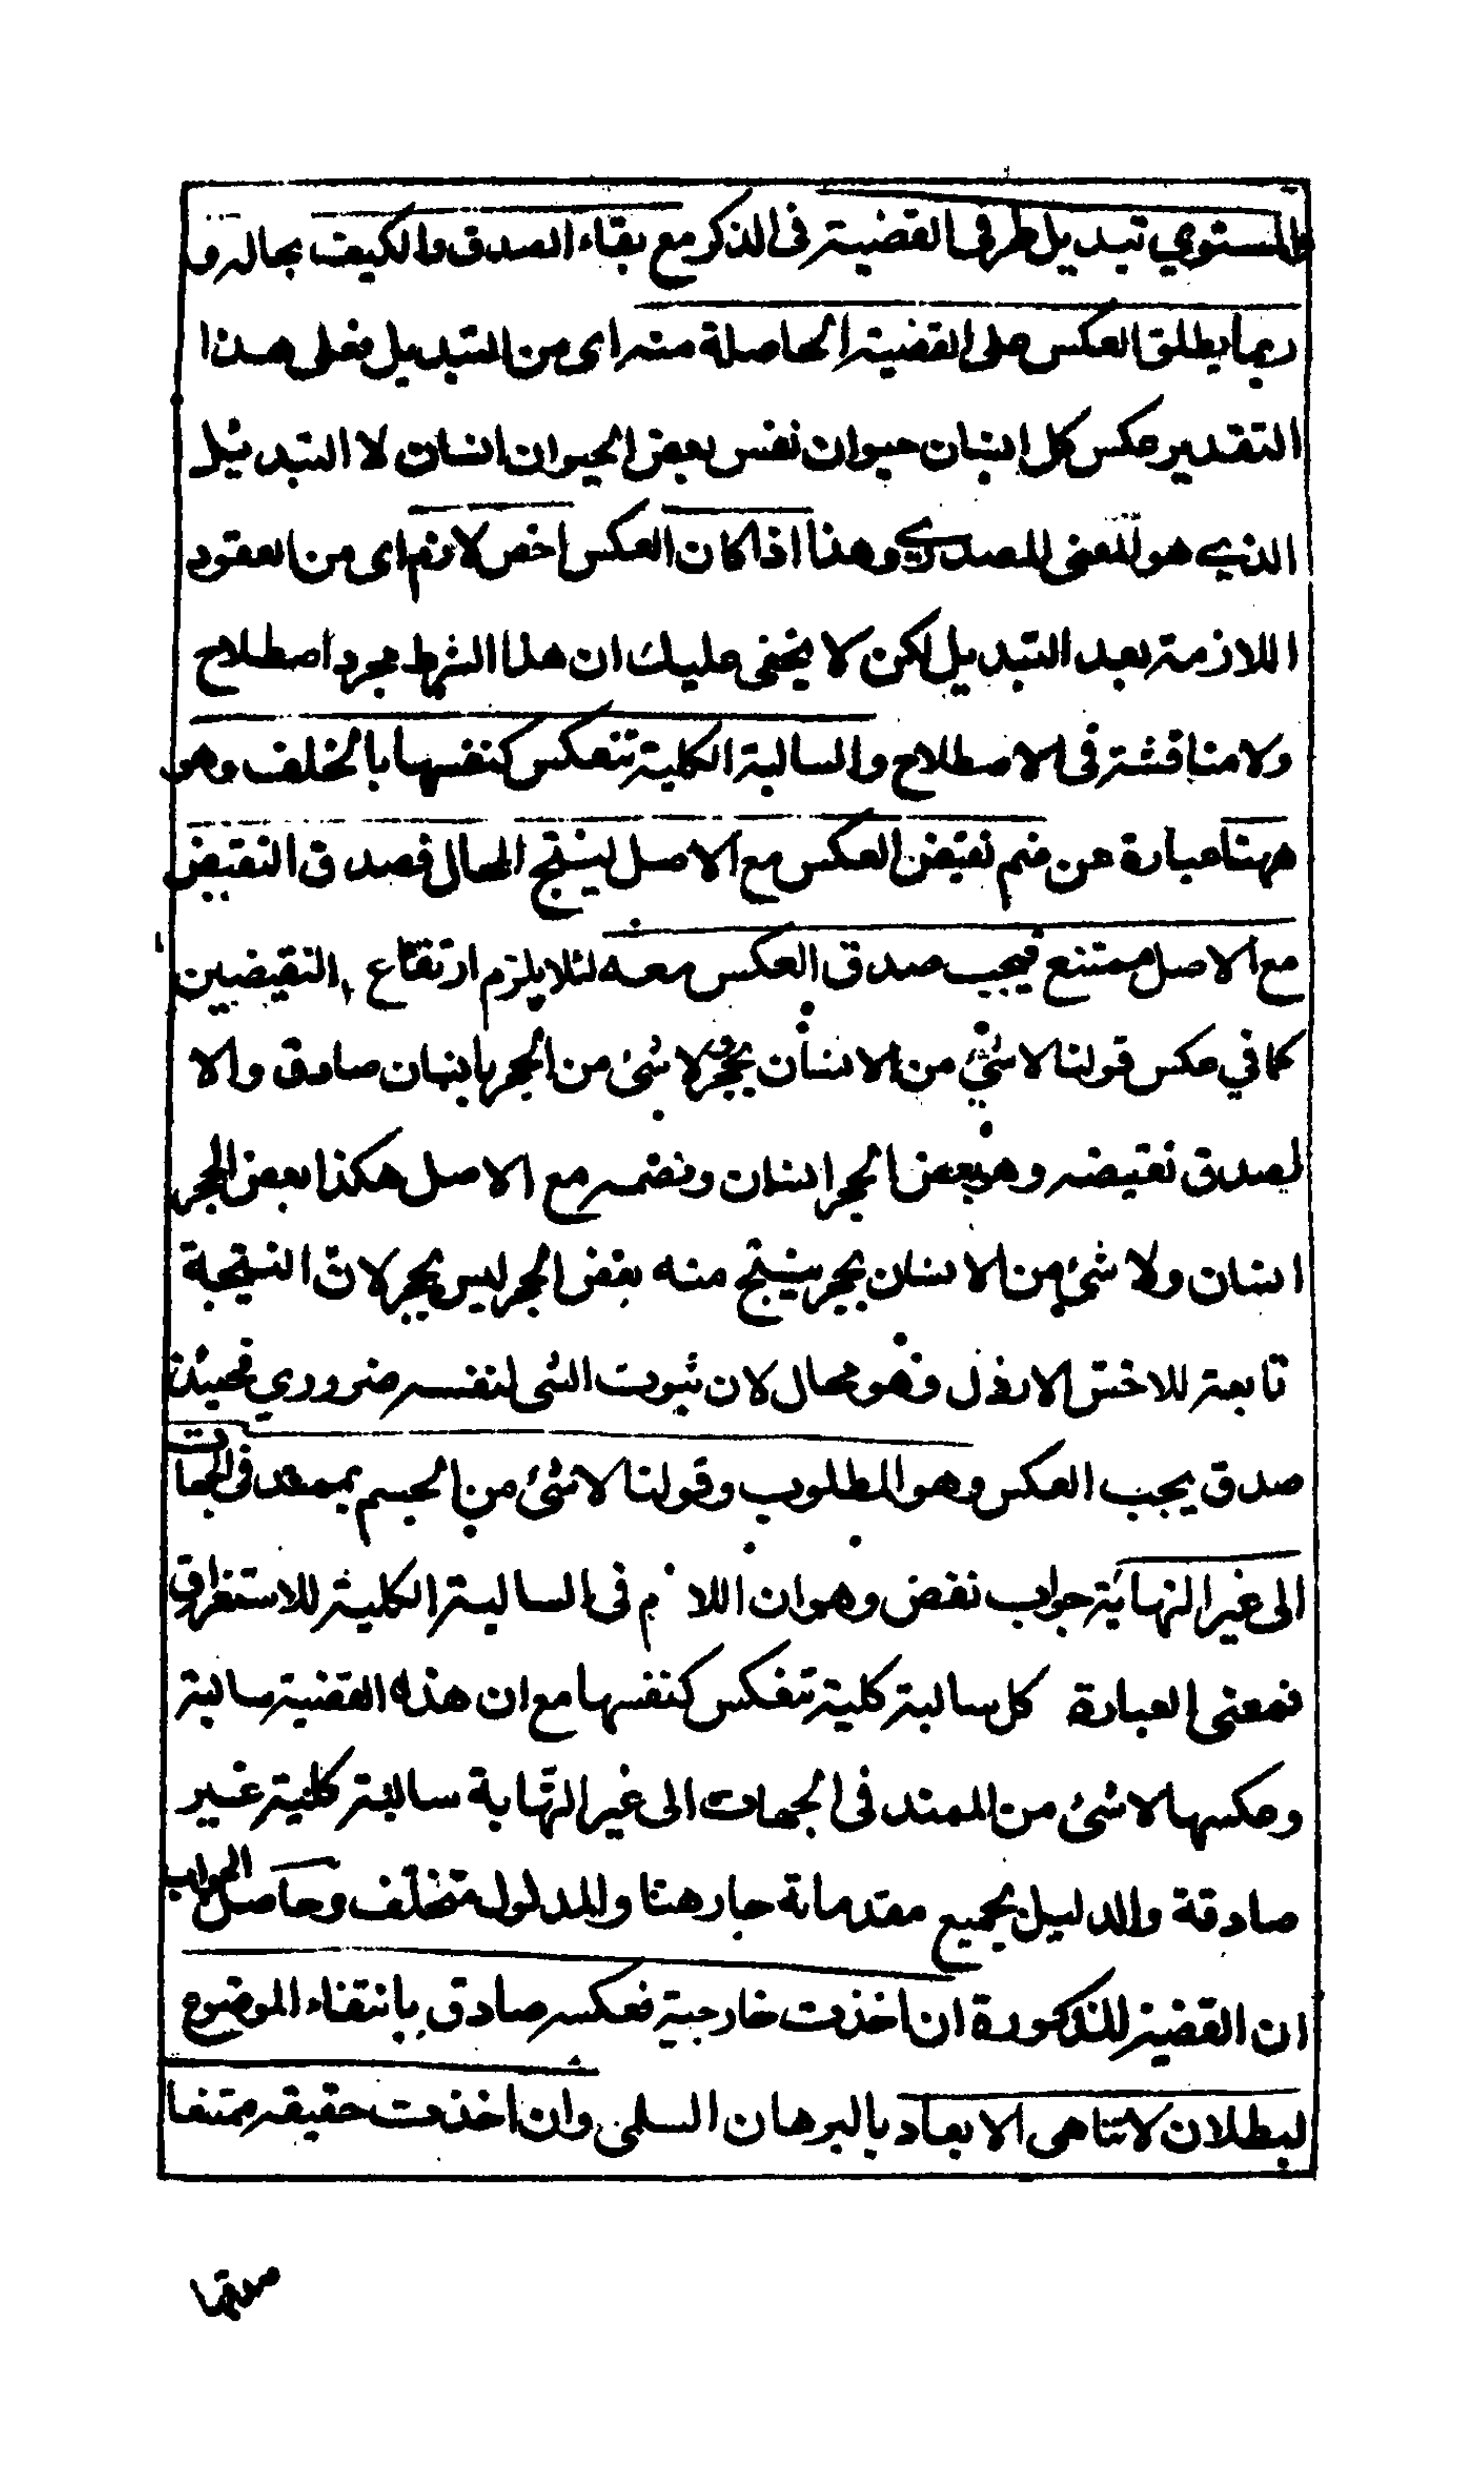 والمستوي تبديل طرفي القضية في الذكر مع بقاء الصدق والكيف بحاله و
ربما يطلق العكس على القضية الحاصلة منه اى من التبديل فعلى هذا
التقدير عكس كل انسان حيوان نفس بعض الحيوان انسان لا التبديل
الذي هو المعنى المصدري وهذا اذا كان العكس اخص لازم اى من العقود
اللازمة بعد التبديل لكن لا يخفى عليك ان هذا الشرط مجرد اصطلاح
ولا مناقشة في الاصطلاح والسالبة الكلية تنعكس كنفسها بالخلف وهو
ههنا عبارة عن ضم نقيض العكس مع الاصل لينتج المحال فصدق النقيض
مع الاصل ممتنع فيجب صدق العكس معه لئلا يلزم ارتقاع النقيضين
كما في عكس قولنا لا شئ من الانسان بحجر ولا شئ من الحجر بانسان صادق والا
لصدق نقيضه وهو بعض الحجر انسان ونضمه مع الاصل هكذا بعض الحجر
انسان ولا شئ من الانسان بحجر ينتج منه بعض الحجر ليس بحجر لان النتيجة
تابعة للاخس الارذل وهو محال لان ثبوت الشى لنفسه ضروري فحينئذ
صدق يجب العكس وهو المطلوب وقولنا لا شئ من الجسم بممتد في الجهات
الى غير النهاية جواب نقض وهو ان اللام في السالبة الكلية للاستغراق
فمعنى العبارة كل سالبة كلية تنعكس كنفسها مع ان هذه القضية سالبة
وعكسها لا شئ من الممتد في الجهات الى غير النهاية سالبة كلية غير
صادقة والدليل بجميع مقدماته جار هنا والمدلول متخلف وحاصل الجواب
ان القضية المذكورة ان اخذت خارجية فعكسه صادق بانتفاء الموضوع
لبطلان لا تناهى الابعاد بالبرهان السلمى وان اخذت حقيقه ممتنعا